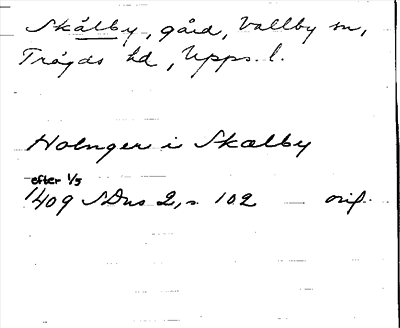 Skålby, gård, Vallby sn,
Trögds hd, Upps. l.
Holmger i Skalby
efter 1/5
1409 SDns 2, s. 102 orig.